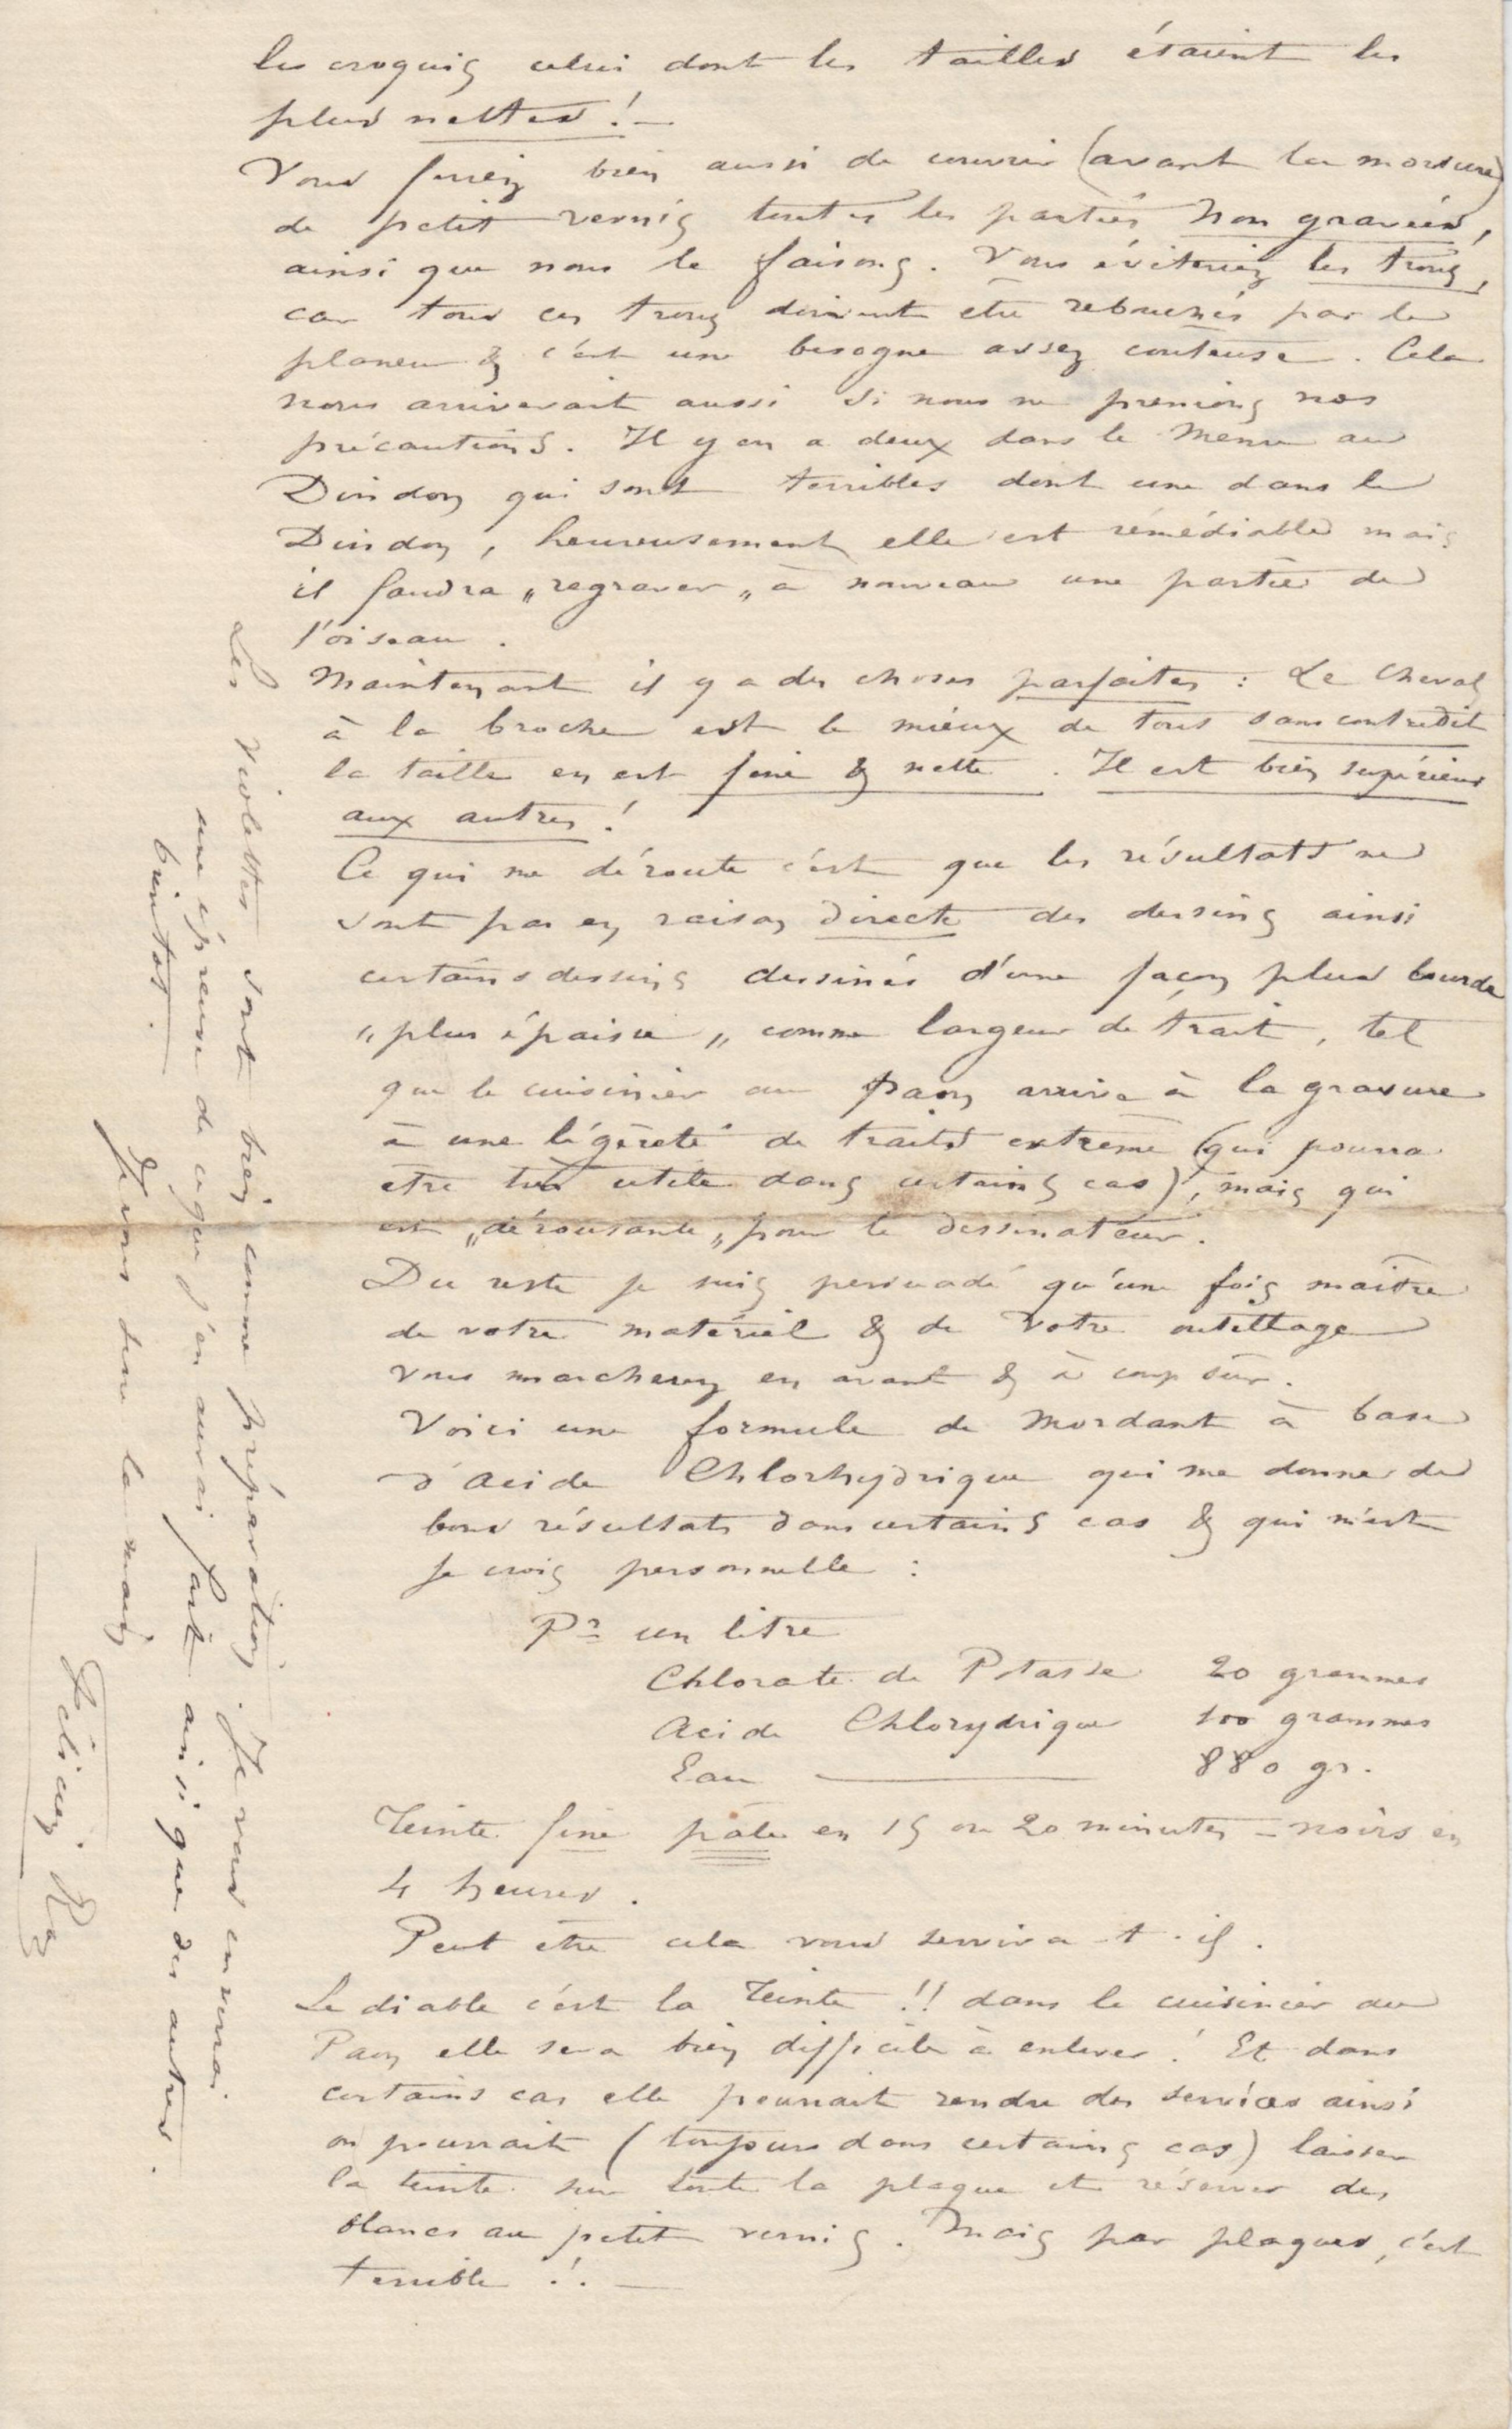 les croquis celui dont les tailles étaient les
plus nettes ! —
Vous feriez bien aussi de couvrir (avant la morsure)
de petit vernis toutes les parties non gravées,
ainsi que nous le faisons. Vous éviteriez les trous,
car tous ces trous doivent être rebouchés par le
planeur & c'est une besogne assez couteuse. Cela
nous arriverait aussi si nous ne prenions nos
précautions. Il y en a deux dans le Menu au
Dindon qui sont terribles dont une dans le
Dindon, heureusement elle est rémédiable mais
il faudra „regraver„ à nouveau une partie de
l'oiseau.
Maintenant il y a des choses parfaites : Le Cheval
à la broche est le mieux de tous sans contredit
la taille en est fine & nette. Il est bien supérieur
aux autres !
Ce qui me déroute c'est que les résultats ne
sont pas en raison directe des dessins ainsi
certains dessins dessinés d'une façon plus lourde
„plus épaisse„ comme largeur de trait, tel
que le cuisinier au paon arrive à la gravure
à une légèreté de traits extrême (qui pourra
etre très utile dans certains cas), mais qui
est „déroutante„ pour le dessinateur.
Du reste je suis persuadé qu'une fois maître
de votre matériel & de votre outillage
vous marcherez en avant & à coup sûr.
Voici une formule de Mordant à base
d'acide Chlorhydrique qui me donne de
bons résultats dans certains cas & qui m'est
je crois personnelle :
Pr un litre
Chlorate de Potasse 20 grammes
Acide Chlorydrique 100 grammes
Eau — 880 gr.
Teinte fine pâle en 15 ou 20 minutes — noirs en
4 heures.
Peut etre cela vous servira-t-il.
Le diable c'est la Teinte !! dans le cuisinier au
Paon elle sera bien difficile à enlever ! Et dans
certains cas elle pourrait rendre des services ainsi
on pourrait (toujours dans certains cas) laisser
la teinte sur toute la plaque et réserver des
blancs au petit vernis. Mais par plaques, c'est
terrible !! —
Les violettes sont bien comme préparation. Je vous enverrai
une épreuve de ce que j'en aurai fait ainsi que des autres.
bientôt.
Je vous serre la main
Félicien Rops